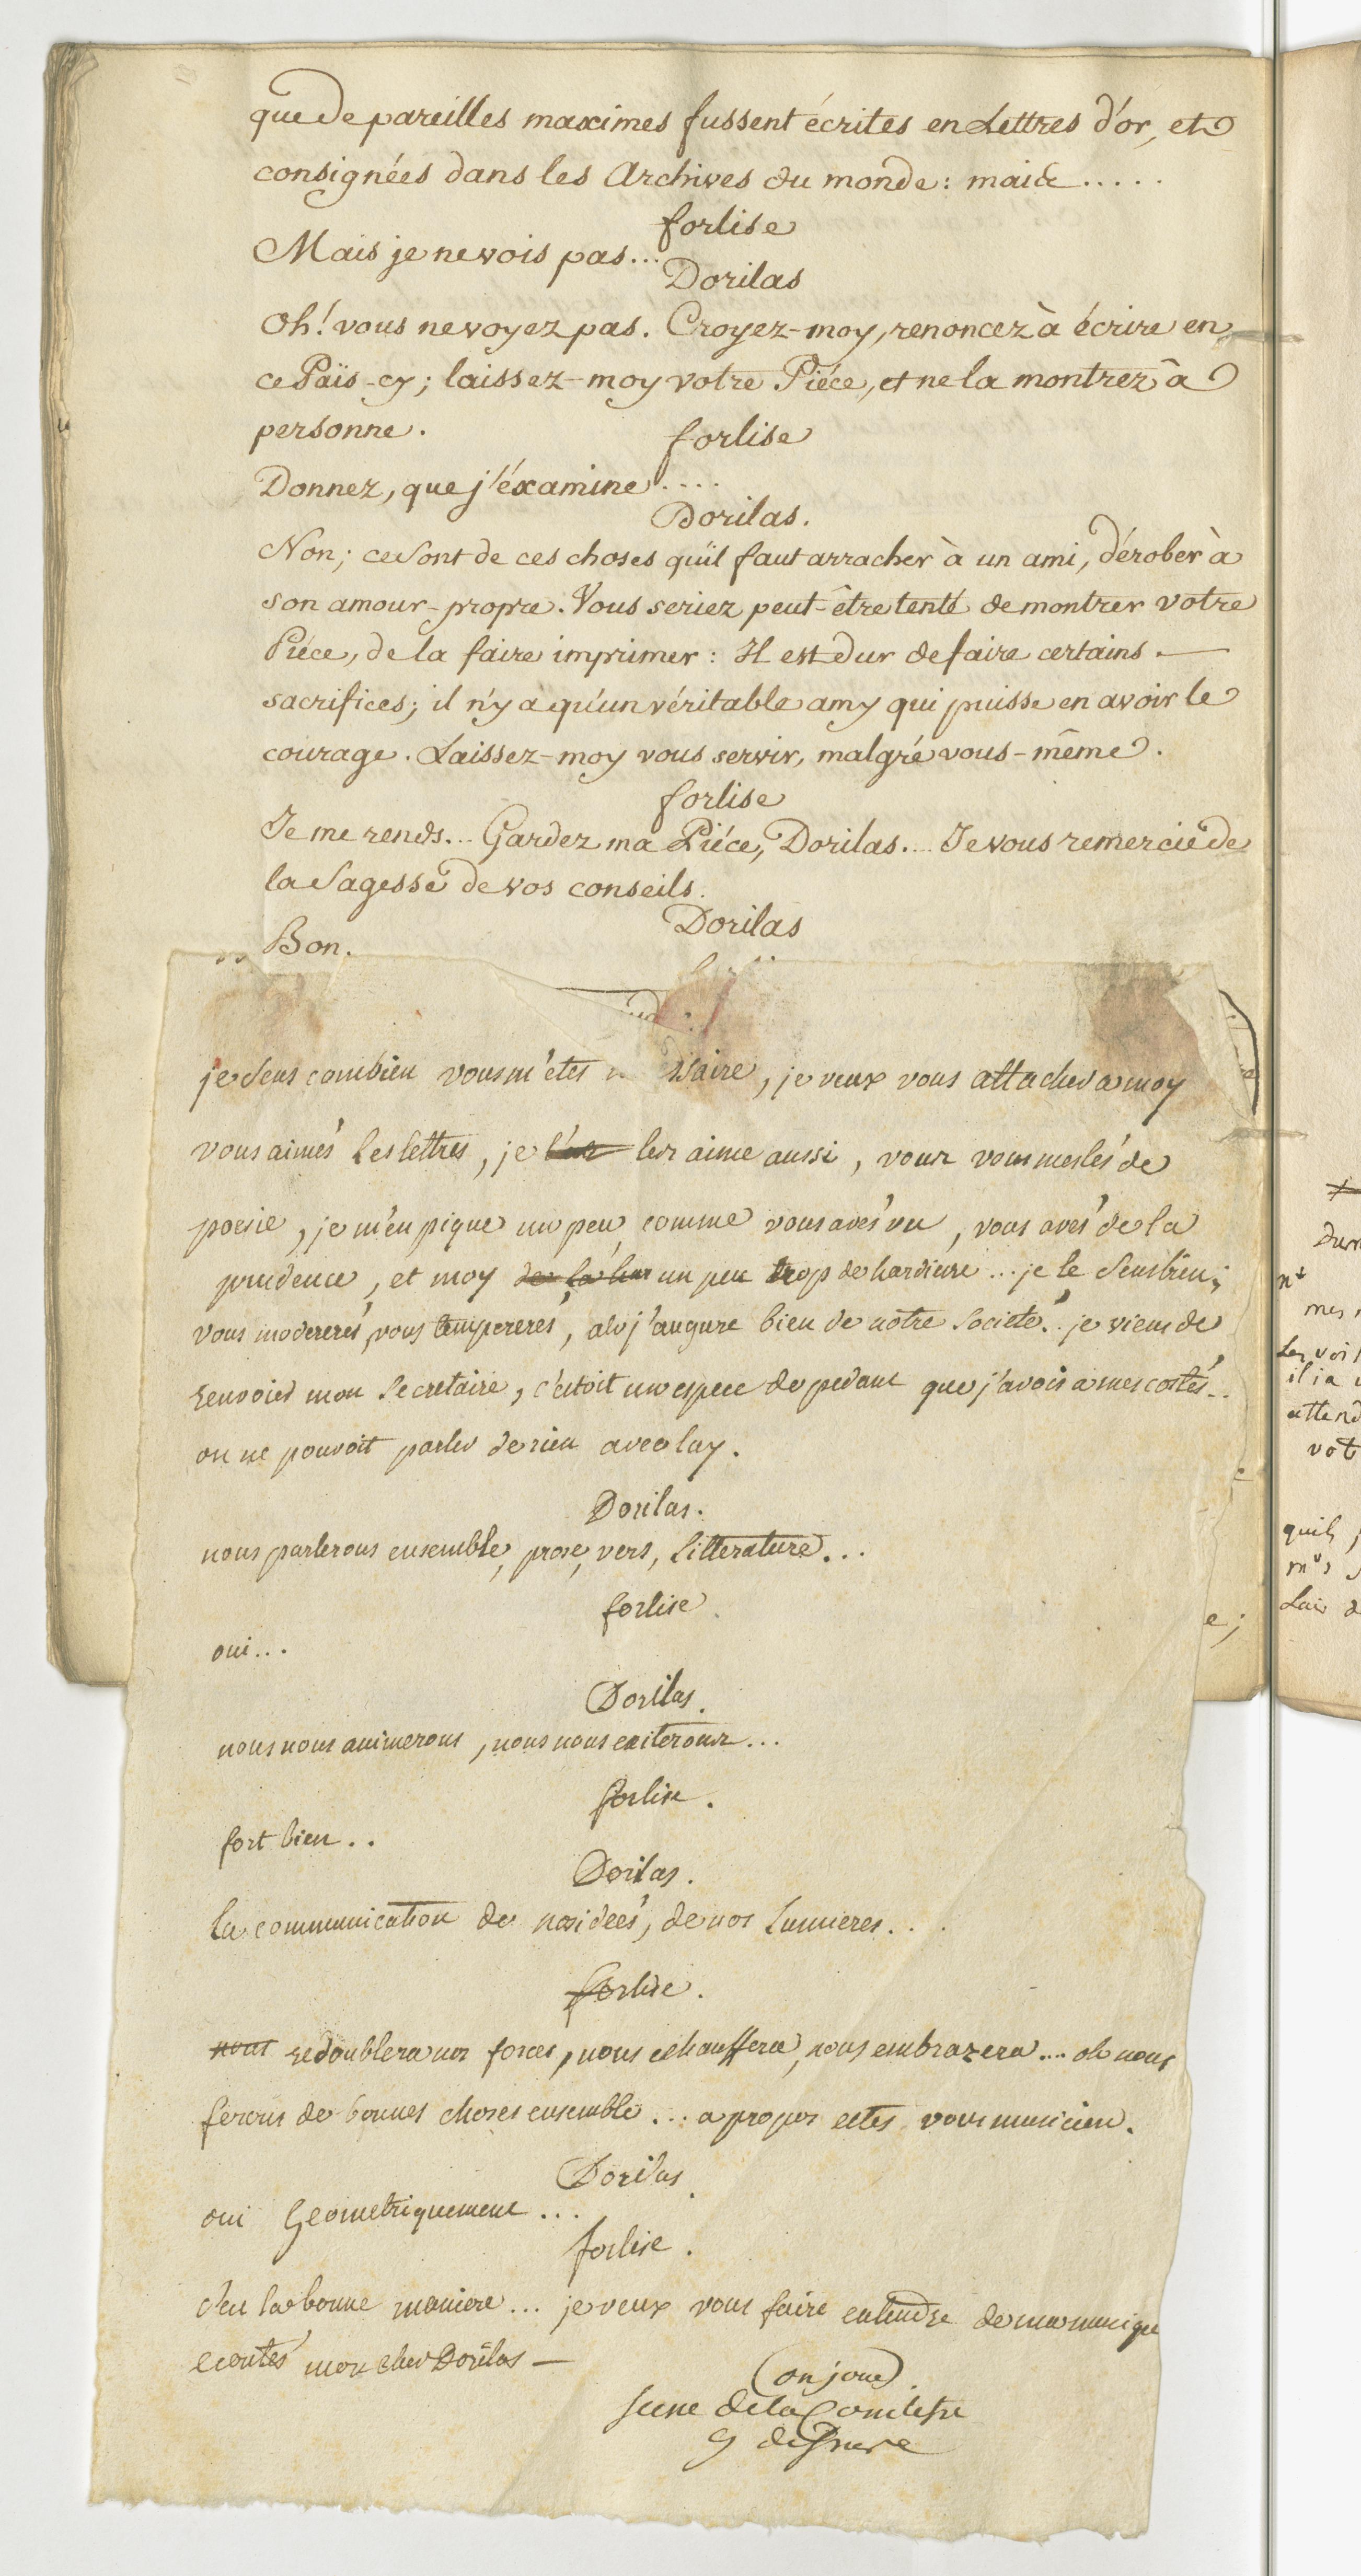 que de pareilles maximes fussent écrites en Lettres d'or, et
consignées dans les Archives du monde: mais.....
forlise
Mais je ne vois pas...
Dorilas
Oh! vous ne voyez pas. Croyez-moy, renoncez à écrire en
ce Païs-cy; laissez-moy votre Piéce, et ne la montrez à
personne.
forlise
Donnez, que j'éxamine....
Dorilas.
Non; ce sont de ces choses qu'il faut arracher à un ami, dérober à
son amour-propre. Vous seriez peut-être tenté de montrer votre
Piéce, de la faire imprimer: Il est dur de faire certains
sacrifices; il n'y a qu'un véritable amy qui puisse en avoir le
courage. Laissez-moy vous servir, malgré vous-même.
forlise
Je me rends... Gardez ma Piéce, Dorilas.... Je vous remercie de
la Sagesse de vos conseils.
Dorilas
Bon.
je sens combien vous m'etes , je veux vous attacher a moy
vous aimés les lettres, je les aime aussi, vous vous meslés de
poesie, je m'en pique un peu comme vous avés vu, vous avés de la
prudence, et moy un peu trop de hardiesse... je le sens bien;
vous modererés, vous tempererés, j'augure bien de notre societé.. je viens de
renvoier mon secretaire, c'etoit une espece de pedant que j'avois a mes costés...
on ne pouvoit parler de rien avec luy.
Dorilas.
nous parlerons ensemble, prose, vers, litterature...
forlise.
oui...
Dorilas.
nous nous animerons, nous nous exiterons...
forlise.
fort bien..
Dorilas.
la communication de nos idées, de nos lumieres...
forlise.
nous redoublera nos forces, nous echauffera, nous embrazera.... oh nous
ferons de bonnes choses ensemble... a propos estes vous musicien.
Dorilas.
oui Geometriquement...
forlise.
c'est la bonne maniere... je veux vous faire entendre de ma musique
ecoutés mon cher Dorilas —
(on joue).
scene de la Comtesse